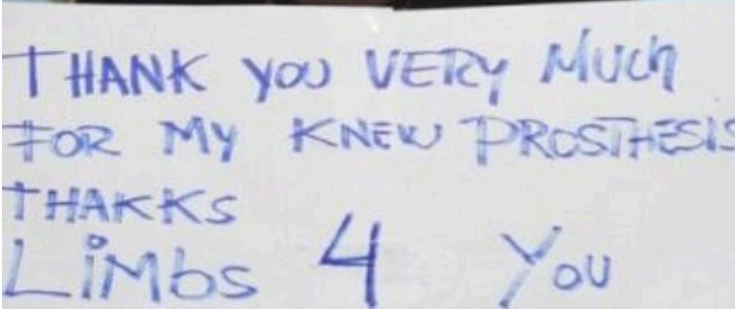 THANK YOU VERY MUCH
FOR MY KNEW PROSTHESIS
THAKKS
LiMbS 4 YOU